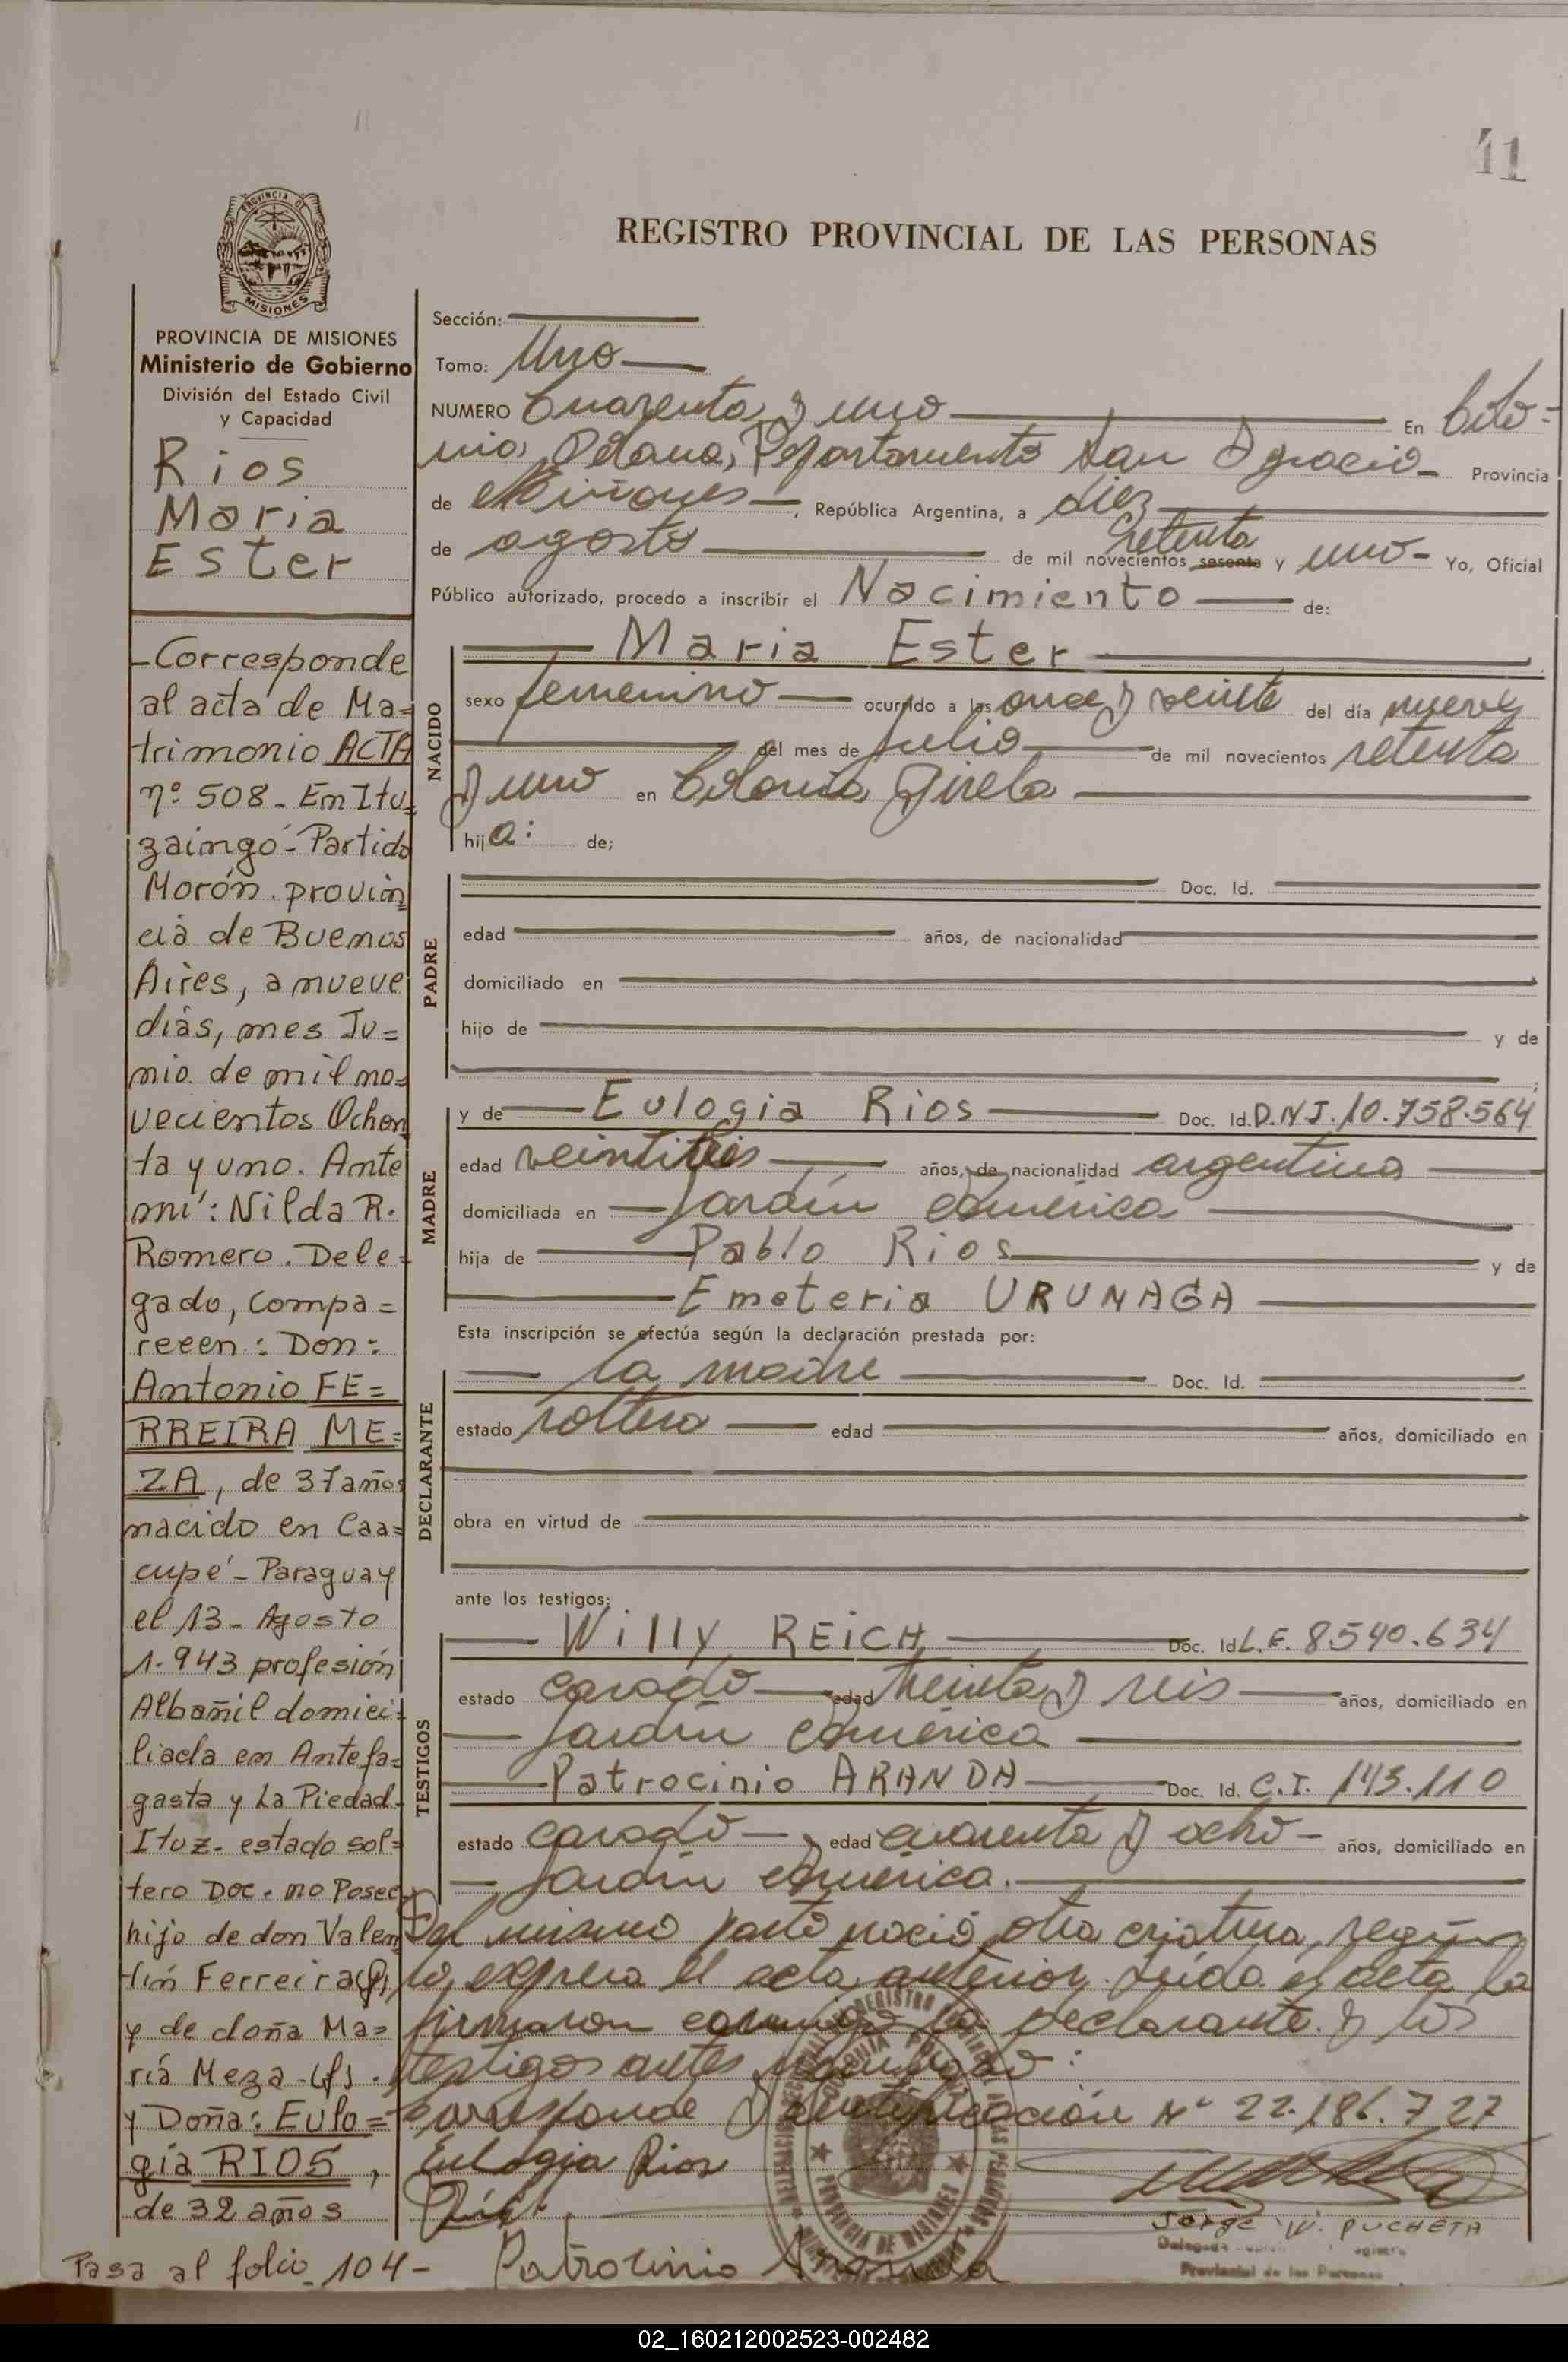 11
REGISTRO PROVINCIAL DE LAS PERSONAS
PROVINCIA DE MISIONES
PROVINCIA DE MISIONES
Ministerio de Gobierno
División del Estado Civil
y Capacidad
Rios
Maria
Ester
-Corresponde
al acta de Ma=
trimonio ACTA
nº 508 - En Itu=
zaingó - Partido
Morón. provin
cia de Buenos
Aires, a nueve
días, mes Ju=
nio de mil no=
vecientos Ochen
ta y uno. Ante
mi: Nilda R.
Romero. Dele-
gado, compa=
recen: Don:
Antonio FE=
RREIRA ME=
ZA, de 37 años
nacido en Caa=
cupé - Paraguay
el 13 - Agosto
1.943 profesión
Albañil domici=
liada en Antofa=
gasta y La Piedad-
Ituz. estado sol=
tero Doc. no Posee
hijo de don Valen
tín Ferreira
y de doña Ma=
ría Meza - (f).
y Doña: Eulo=
gia RIOS,
de 32 años
Pasa al folio 104-
Sección:
Tomo: Uno
NUMERO Cuarenta y uno En Colo-
nia Polana, Departamento San Ignacio Provincia
de Misiones, República Argentina, a diez
de agosto de mil novecientos sesenta setenta y uno- Yo, Oficial
Público autorizado, procedo a inscribir el Nacimiento de:
NACIDO
Maria Ester
sexo femenino ocurrido a las once y veinte del día nueve
del mes de julio de mil novecientos setenta
y uno en Colonia Gisela
hija: de;
PADRE
Doc. Id.
edad años, de nacionalidad
domiciliado en
hijo de y de
MADRE
y de Eulogia Rios Doc. Id. D.N.I. 10.758.564
edad años, de nacionalidad argentina
domiciliada en Jardín América
hija de Pablo Rios y de
Emeteria URUNAGA
Esta inscripción se efectúa según la declaración prestada por:
DECLARANTE
la madre Doc. Id.
estado soltera edad años, domiciliado en
obra en virtud de
ante los testigos:
TESTIGOS
Willy REICH Doc. Id. L.E. 8540.634
estado casado edad treinta y seis años, domiciliado en
Jardín América
Patrocinio ARANDA Doc. Id. C.I. 143.110
estado casado, edad cuarenta y ocho- años, domiciliado en
Jardín América.
Del mismo parto nació otra criatura, según
lo expresa el acta anterior. Leída el acta la
firmaron conmigo la declarante y los
testigos antes
Corresponde Identificación Nº 22.186.727
Eulogia Rios
Patrocinio Aranda
Jorge W. PUCHETA
Provincial de las Personas
02_160212002523-002482